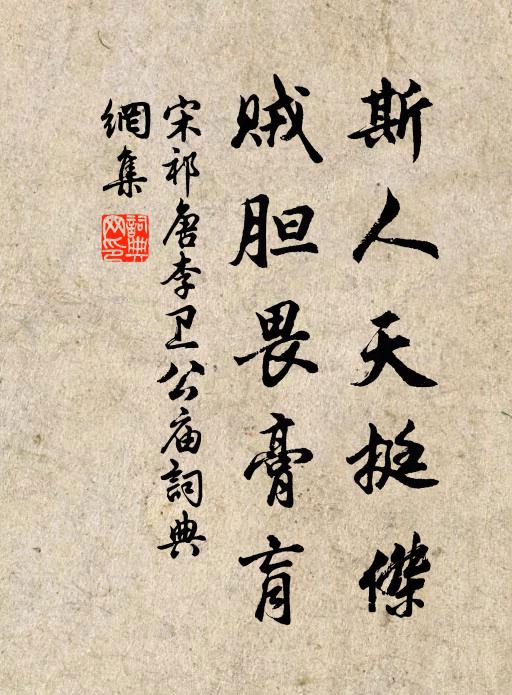 斯人天挺傑
贼胆畏膏肓
宋祁唐李卫公庙詞典
網集
詞典网印